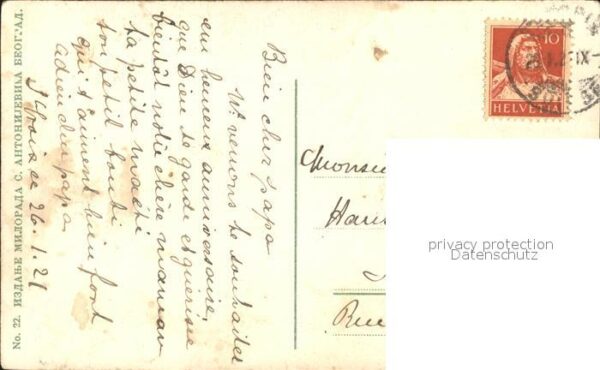 No. 22. ИЗДАЊЕ МИЛОРАДА С. АНТОНИЈЕВИЋА БЕОГРАД.
Bien cher papa
venons te souhaiter
un heureux anniversaire,
que Dieu te garde et guérisse
bientôt notre chère maman
ta petite
ton petit
qui t'aiment bien fort
adieu cher papa
26.1.21
10
HELVETIA
Monsieu
Rue
privacy protection
Datenschutz